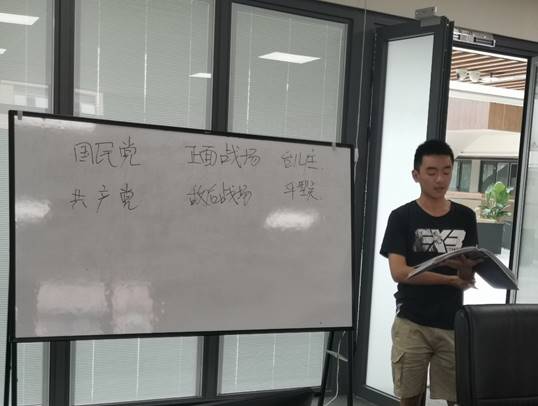 国民党 正面战场 台儿庄
共产党 敌后战场 平型关